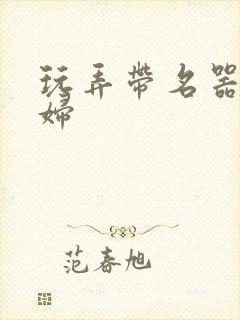 玩弄带名器
婦
范春旭